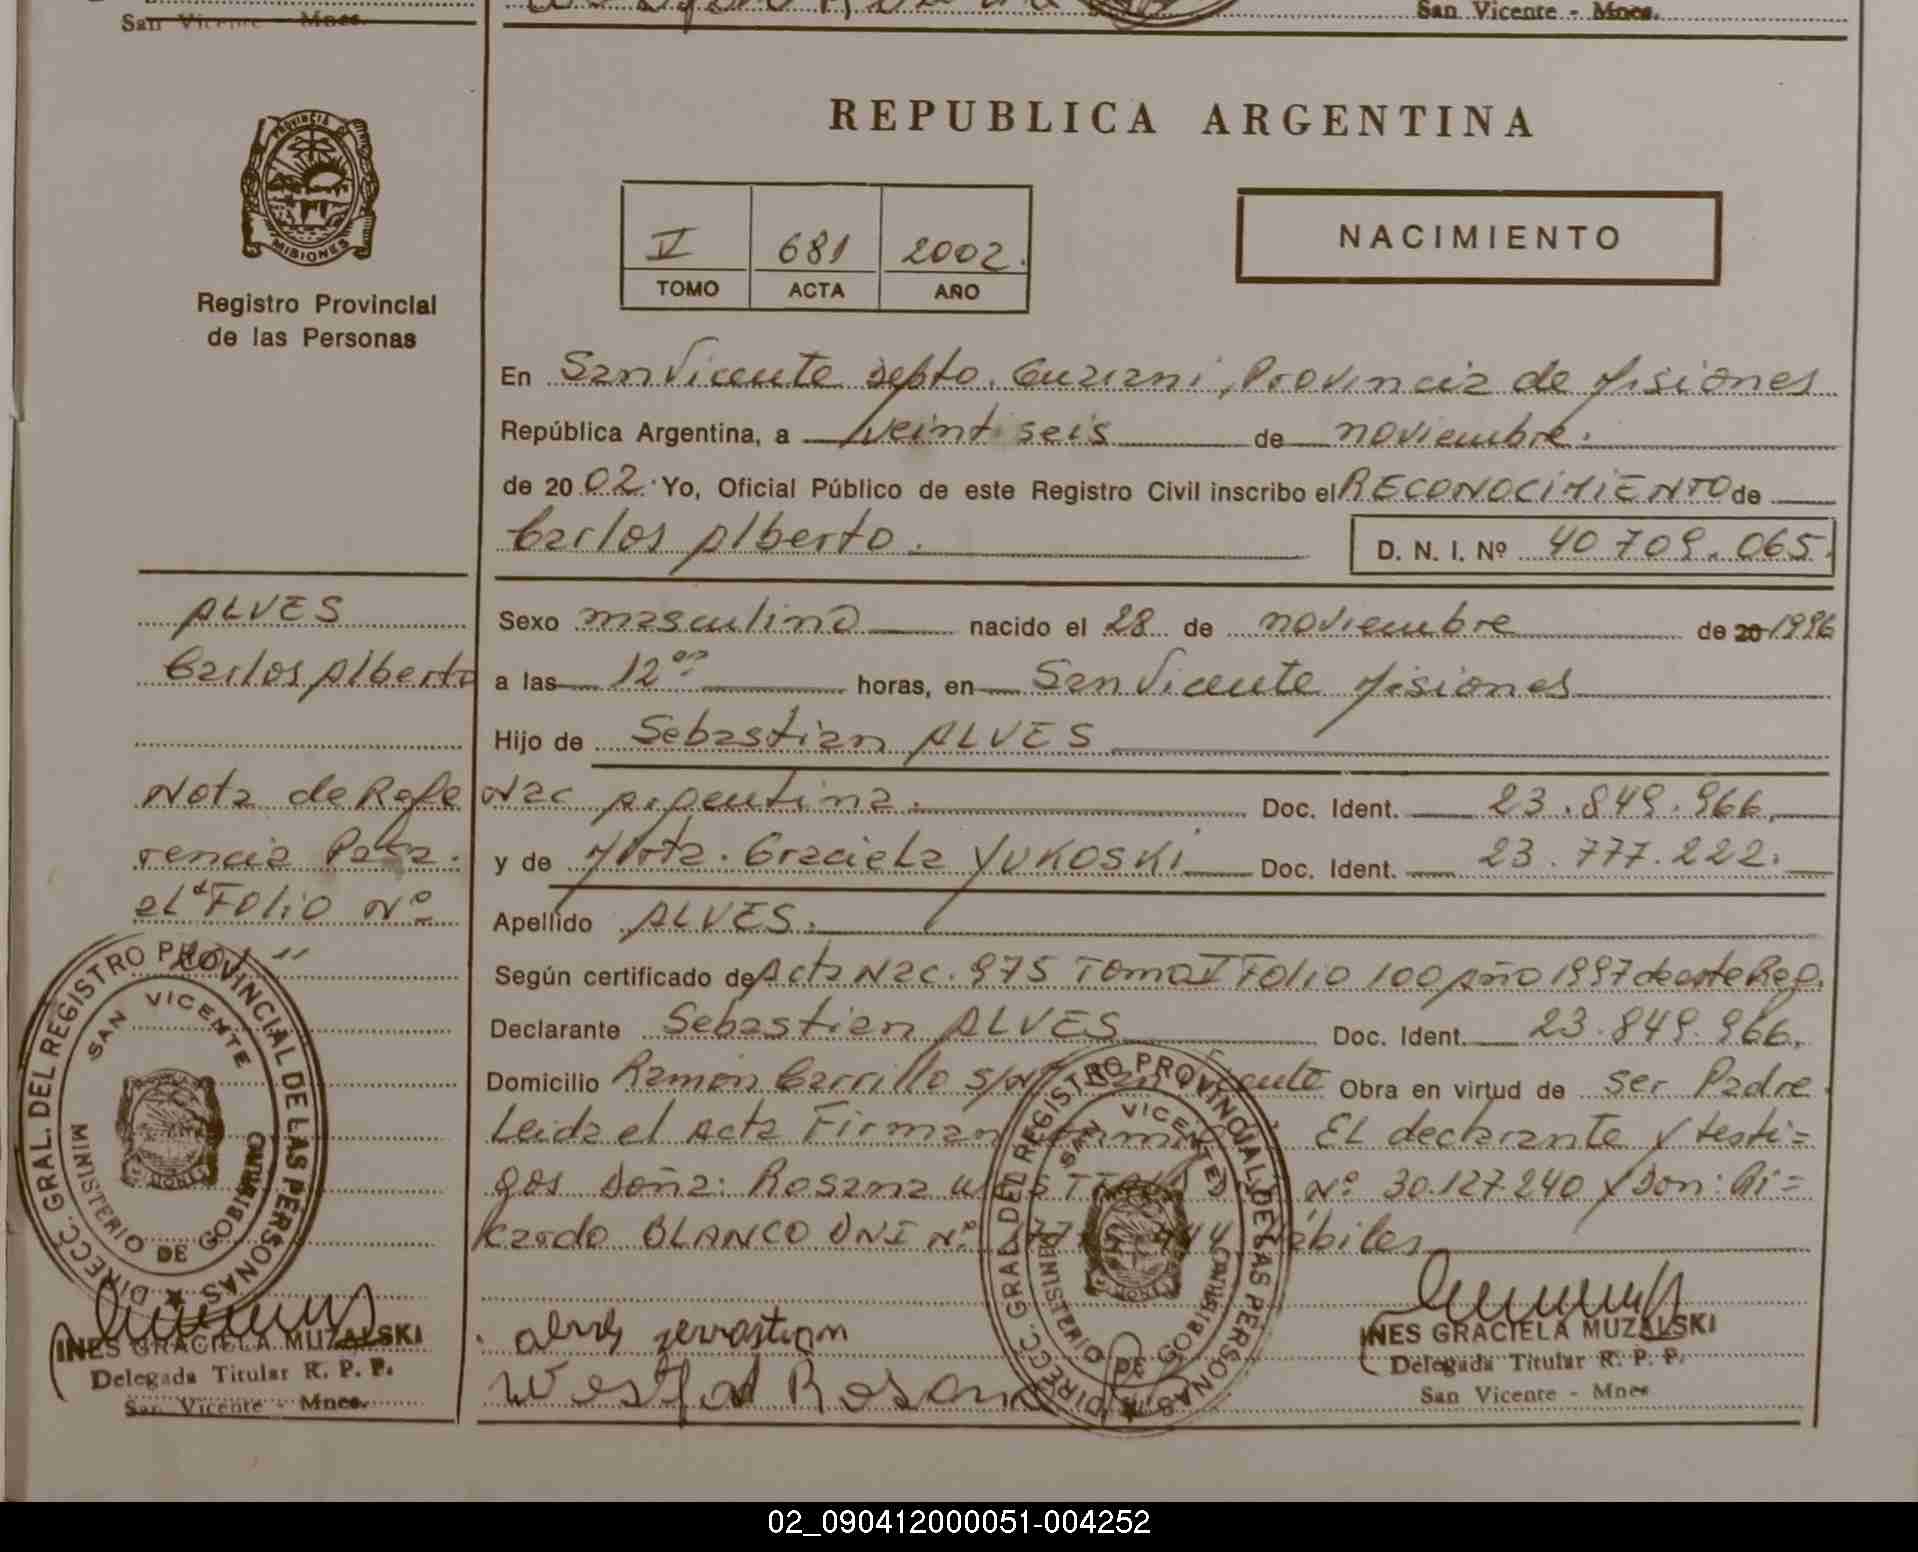 San Vicente - Mnes.
San Vicente - Mnes.
REPUBLICA ARGENTINA
PROVINCIA DE
MISIONES
Registro Provincial
de las Personas
V 681 2002.
TOMO ACTA AÑO
NACIMIENTO
En San Vicente Depto. Guarani, Provincia de Misiones
República Argentina, a veintiseis de noviembre.
de 2002. Yo, Oficial Público de este Registro Civil inscribo el RECONOCIMIENTO de
Carlos Alberto. D. N. I. Nº 40 709.065.
ALVES
Carlos Alberto
Sexo masculino nacido el 28 de noviembre de 20 1996
a las 12 horas, en San Vicente Misiones
Hijo de Sebastian ALVES
Nac Argentina. Doc. Ident. 23.849.966.
y de Mirta. Graciela YUKOSKI Doc. Ident. 23.777.222.
Apellido ALVES.
Según certificado de Acta Nac. 975 Tomo V Folio 100 Año 1997 de este Reg.
Declarante Sebastian ALVES Doc. Ident. 23.849.966.
Domicilio Ramón Carrillo S/Nº San Vicente Obra en virtud de ser Padre.
Leida el Acta Firman El declarante y testi=
gos Doña: Rosana Nº 30.127.240 y Don: Ri=
cardo BLANCO DNI Nº hábiles
Nota de Refe
rencia Pasa.
el Folio Nº
DIRECC. GRAL. DEL REGISTRO PROVINCIAL DE LAS PERSONAS
SAN VICENTE
MINISTERIO DE GOBIERNO
INES GRACIELA MUZALSKI
Delegada Titular R. P. P.
San Vicente - Mnes.
Alves Sevastian
Westfal Rosana
DIRECC. GRAL. DEL REGISTRO PROVINCIAL DE LAS PERSONAS
SAN VICENTE
MINISTERIO DE GOBIERNO
INES GRACIELA MUZALSKI
Delegada Titular R. P. P.
San Vicente - Mnes
02_090412000051-004252